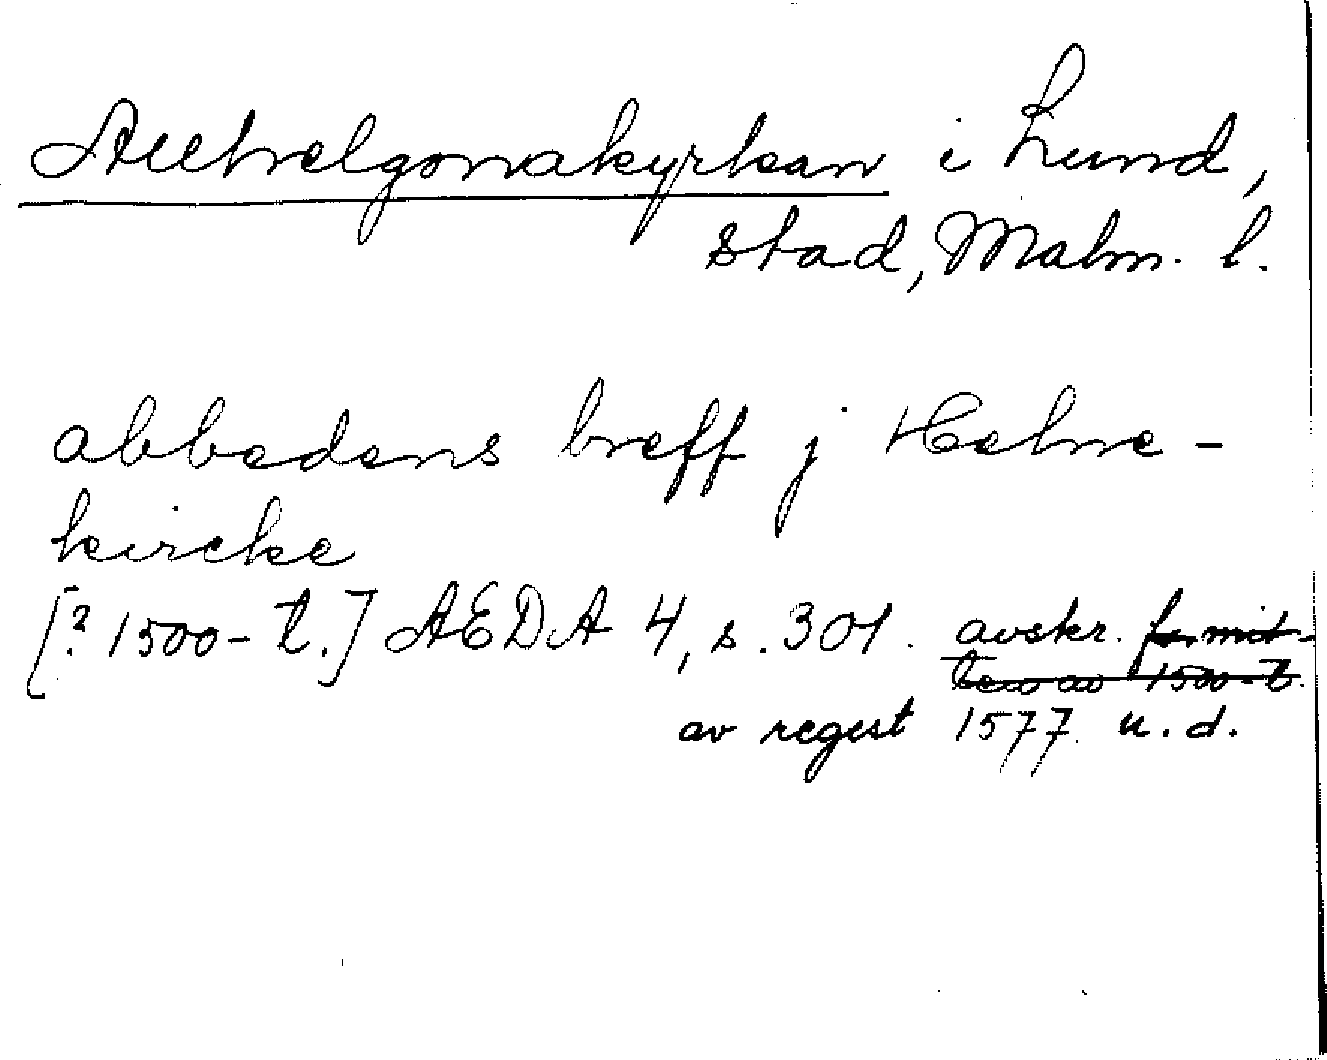 Allhelgonakyrkan i Lund,
stad, Malm. l.
abbedens breff j Helne-
kircke
[? 1500-t.] AEDA 4, s. 301. avskr. fr. mit-
ten av 1500-t.
av regest 1577 u. d.